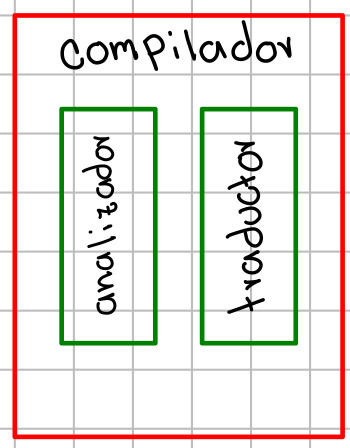 compilador
analizador
traductor